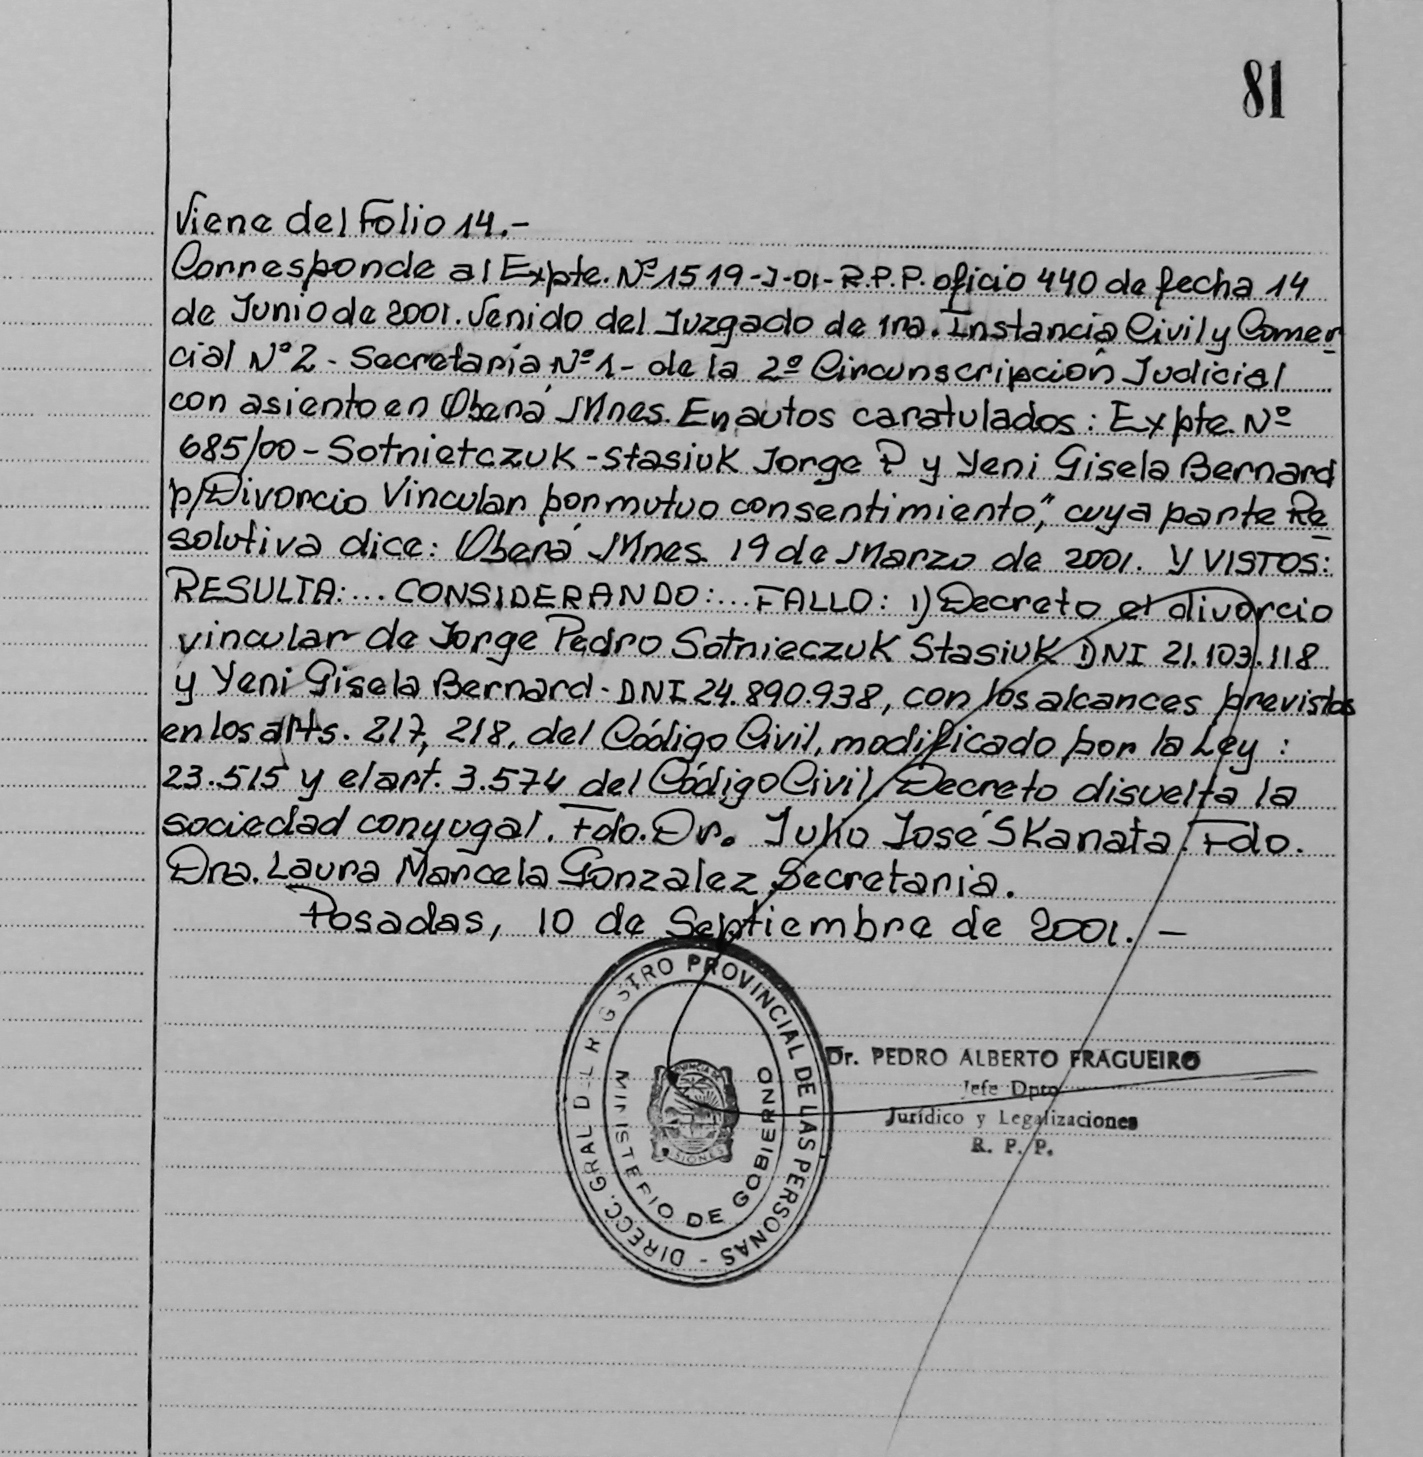 81
Viene del Folio 14.-
Corresponde al Expte. Nº 1519-J-01-R.P.P. oficio 440 de fecha 14
de Junio de 2001. Venido del Juzgado de 1ra. Instancia Civil y Comer
cial Nº 2 - Secretaria Nº 1 - de la 2º Circunscripción Judicial
con asiento en Oberá Mnes. En autos caratulados: Expte Nº
685/00 - Sotnietczuk - Stasiuk Jorge P y Yeni Gisela Bernard
p/Divorcio Vincular por mutuo consentimiento", cuya parte Re
solutiva dice: Oberá Mnes. 19 de Marzo de 2001. Y VISTOS:
RESULTA:... CONSIDERANDO:... FALLO: 1) Decreto el divorcio
vincular de Jorge Pedro Sotnieczuk Stasiuk DNI 21.103.118
y Yeni Gisela Bernard - DNI 24.890.938, con los alcances previstos
en los arts. 217, 218, del Código Civil, modificado por la Ley:
23.515 y el art. 3.574 del Código Civil, Decreto disuelta la
sociedad conyugal. Fdo. Dr. Julio José Skanata. Fdo.
Dra. Laura Marcela Gonzalez Secretaria.
Posadas, 10 de Septiembre de 2001. -
DIRECC. GRAL D L R GSTRO PROVINCIAL DE LAS PERSONAS -
MINISTERIO DE GOBIERNO
Dr. PEDRO ALBERTO FRAGUEIRO
Jefe Dpto
Jurídico y Legalizaciones
R. P. P.